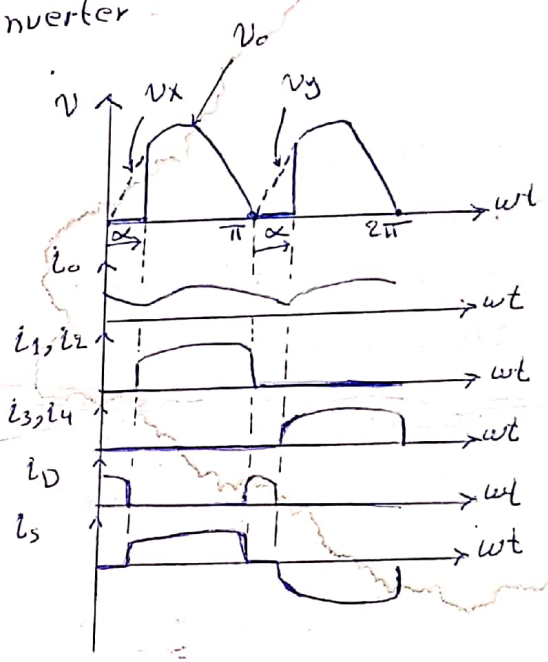 nverter
vo
v vx vy
α π α 2π wt
io
wt
i1, i2
wt
i3, i4
wt
iD
wt
is
wt